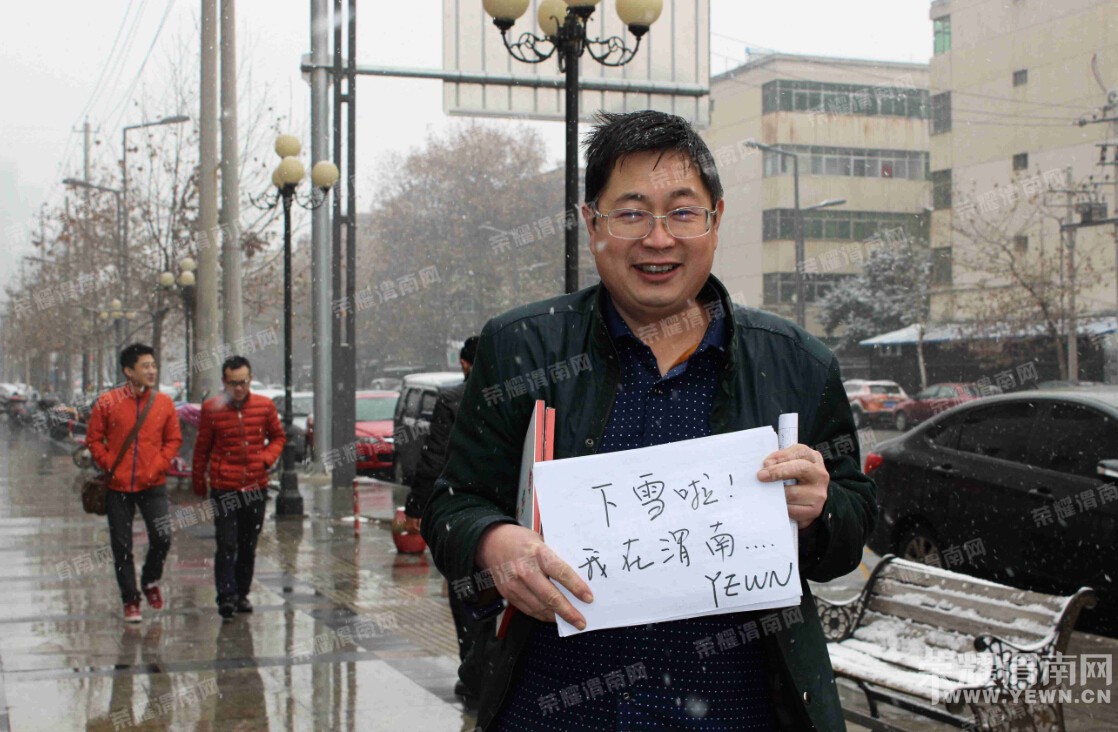 下雪啦!
我在渭南....
YEWN
荣耀渭南网
WWW.YEWN.CN